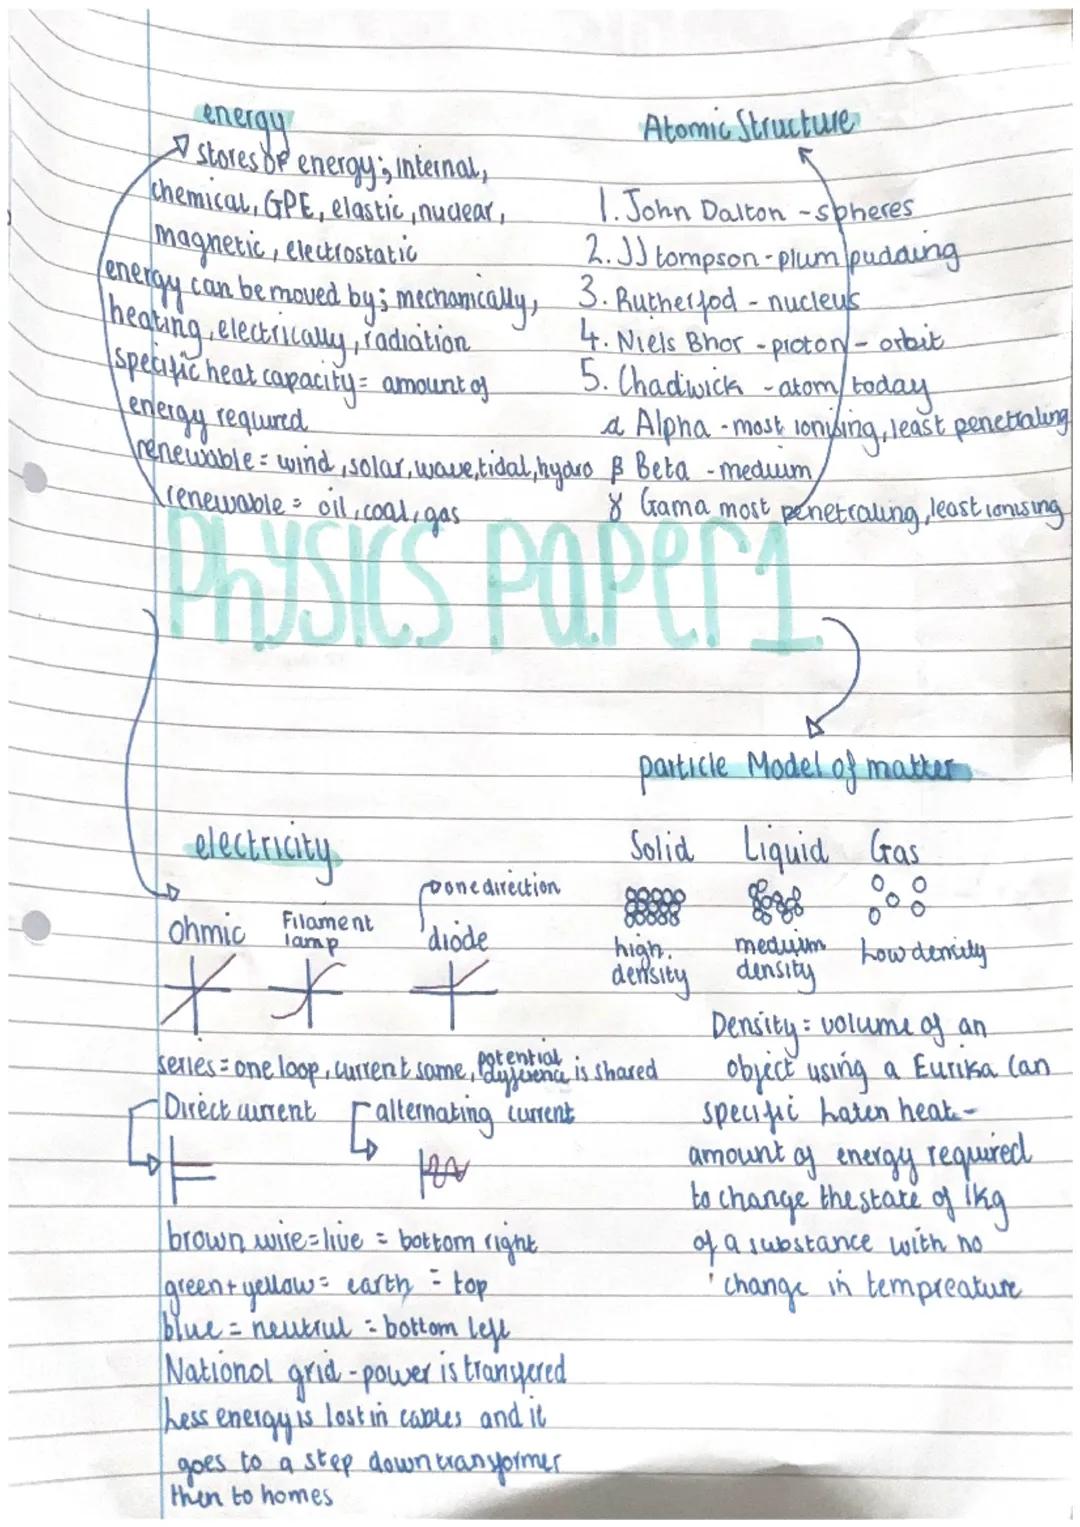 energy
stores of energy; internal,
chemical, GPE, elastic, nuclear,
magnetic, electrostatic
energy can be moved by; mechanically,
heating, electrically, radiation
specific heat capacity = amount of
energy required
renewable = wind, solar, wave, tidal, hydro
renewable = oil, coal, gas
Atomic Structure
1. John Dalton - spheres
2. JJ tompson - plum pudding
3. Rutherfod - nucleus
4. Niels Bhor - proton - orbit
5. Chadiwick - atom today
α Alpha - most ionising, least penetrating
β Beta - medium
γ Gama most penetrating, least ionising
PhYSICS PaPer 1
particle Model of matter
Solid Liquid Gas
high density
medium density
Low density
Density = volume of an
object using a Eurika Can
specific Laten heat -
amount of energy required
to change the state of 1kg
of a substance with no
change in tempreature
electricity
one direction
ohmic
Filament lamp
diode
series = one loop, current same, potential dyference is shared
Direct current
alternating current
brown wire = live = bottom right
green + yellow = earth = top
blue = neutrul = bottom left
National grid - power is transfered
Less energy is lost in cables and it
goes to a step down transformer
then to homes